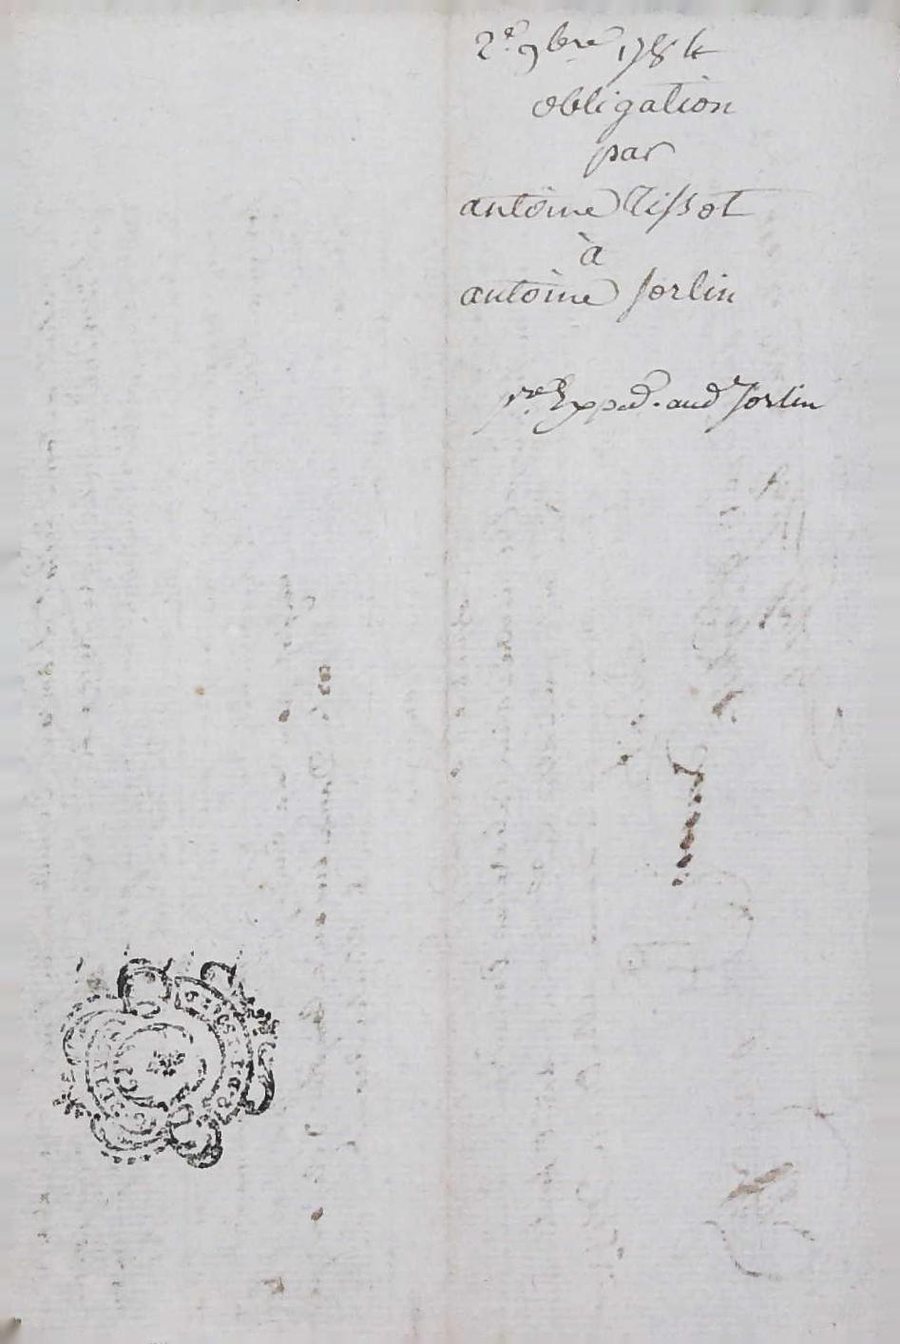 2.e 9bre 1784
obligation
par
antoine Tissot
à
antoine Jorlin
p.re Exped. aud Jorlin